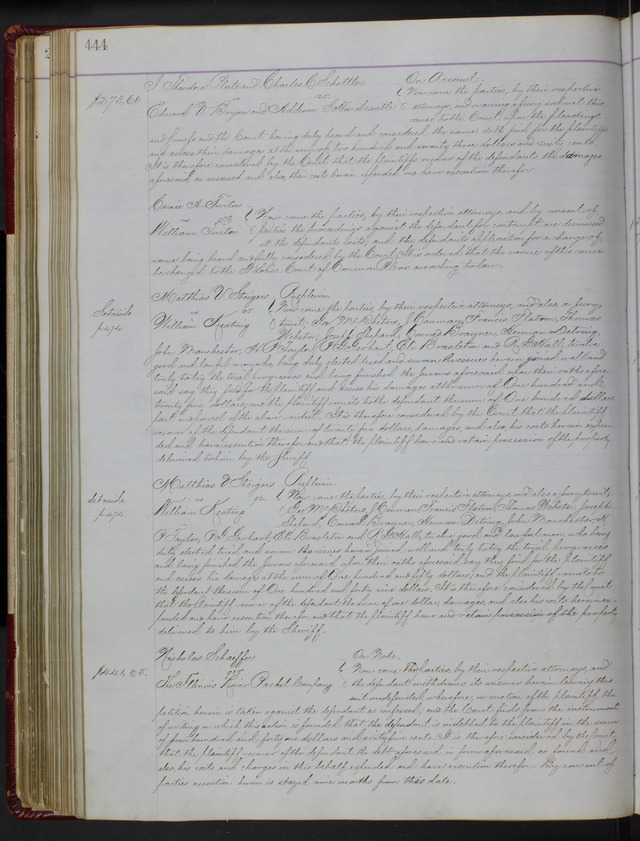 444
J. Theodore Plate and Charles C Schottler On Account.
$273.60 vs. Now come the parties, by their respective
Edward V Bryan and Addison S Hardcastle attorneys, and waiving a jury submit this
cause to the Court upon the pleadings
and proofs and the Court having duly heard and considered the same doth find for the plaintiffs
and assess their damages at the sum of two hundred and seventy three dollars and sixty cents
It is therefore considered by the Court that the plaintiffs recover of the defendants the damages
aforesaid as assessed and also their costs herein expended and have execution therefor
Carrie A. Turton
vs Now come the parties, by their respective attorneys, and by consent of
William Turton parties the proceedings against the defendant for contempt are dismissed
at the defendants costs, and the defendants application for a change of
venue being heard and fully considered by the Court, It is ordered that the venue of this cause
be changed to the St Louis Court of Common Pleas according to law.
Matthias V Steigers Replevin.
Set aside vs Now come the parties, by their respective attorneys, and also a jury,
William Keating towit, Francis Slaton, Thomas
Webster, Joseph Herman Detring,
John Manchester, H P Taylor, P G Gerhart, Eli Brazleton and R G Hall, twelve
good and lawful men who being duly elected tried and sworn the issues herein joined well and
truly to try the trial progresses and being finished the Jurors aforesaid upon their oaths afore
said say they find for the plaintiff and assess his damages at the sum of One hundred and
twenty five dollars, and the plaintiff remits to the defendant the sum of One hundred dollars
part and parcel of the above verdict. It is therefore considered by the Court that the plaintiff
recover of the defendant the sum of twenty five dollars, damages, and also his costs herein expen
ded and have execution therefor and that the plaintiff have and retain possession of the property
delivered to him by the Sheriff
Matthias V Steigers Replevin
Set aside vs Now come the parties, by their respective attorneys, and also a jury towit,
William Keating Francis Slaton, Thomas Webster, Joseph
Herman Detring, John Manchester, H
P Taylor, P G Gerhart, Eli Brazleton and R G Hall, twelve good and lawful men who being
duly elected tried and sworn the issues herein joined well and truly to try the trial progresses
and being finished the jurors aforesaid upon their oaths aforesaid say they find for the plaintiff
and assess his damages at the sum of One hundred and fifty dollars, and the plaintiff remits to
the defendant the sum of One hundred and forty nine dollars. It is therefore considered by the Court
that the plaintiff recover of the defendant the sum of one dollar, damages, and also his costs herein ex
pended and have execution therefor and that the plaintiff have and retain possession of the property
delivered to him by the Sheriff.
Nicholas Schaeffer On Note.
vs Now come the parties, by their respective attorneys, and
The Illinois River Packet Company the defendant withdraws its answer herein leaving this
suit undefended, wherefore, on motion of the plaintiff, the
petition herein is taken against the defendant as confessed, and the Court finds from the instrument
of writing on which this action is founded, that the defendant is indebted to the plaintiff in the sum
of four hundred and forty one dollars and sixty five cents. It is therefore considered by the Court
that the plaintiff recover of the defendant the debt aforesaid in form aforesaid as found and
also his costs and charges in this behalf expended and have execution therefor. By consent of
parties execution herein is stayed nine months from this date.